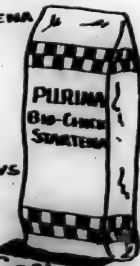 ENA
PURINA
BIO-CHICK
STARTENA
WS